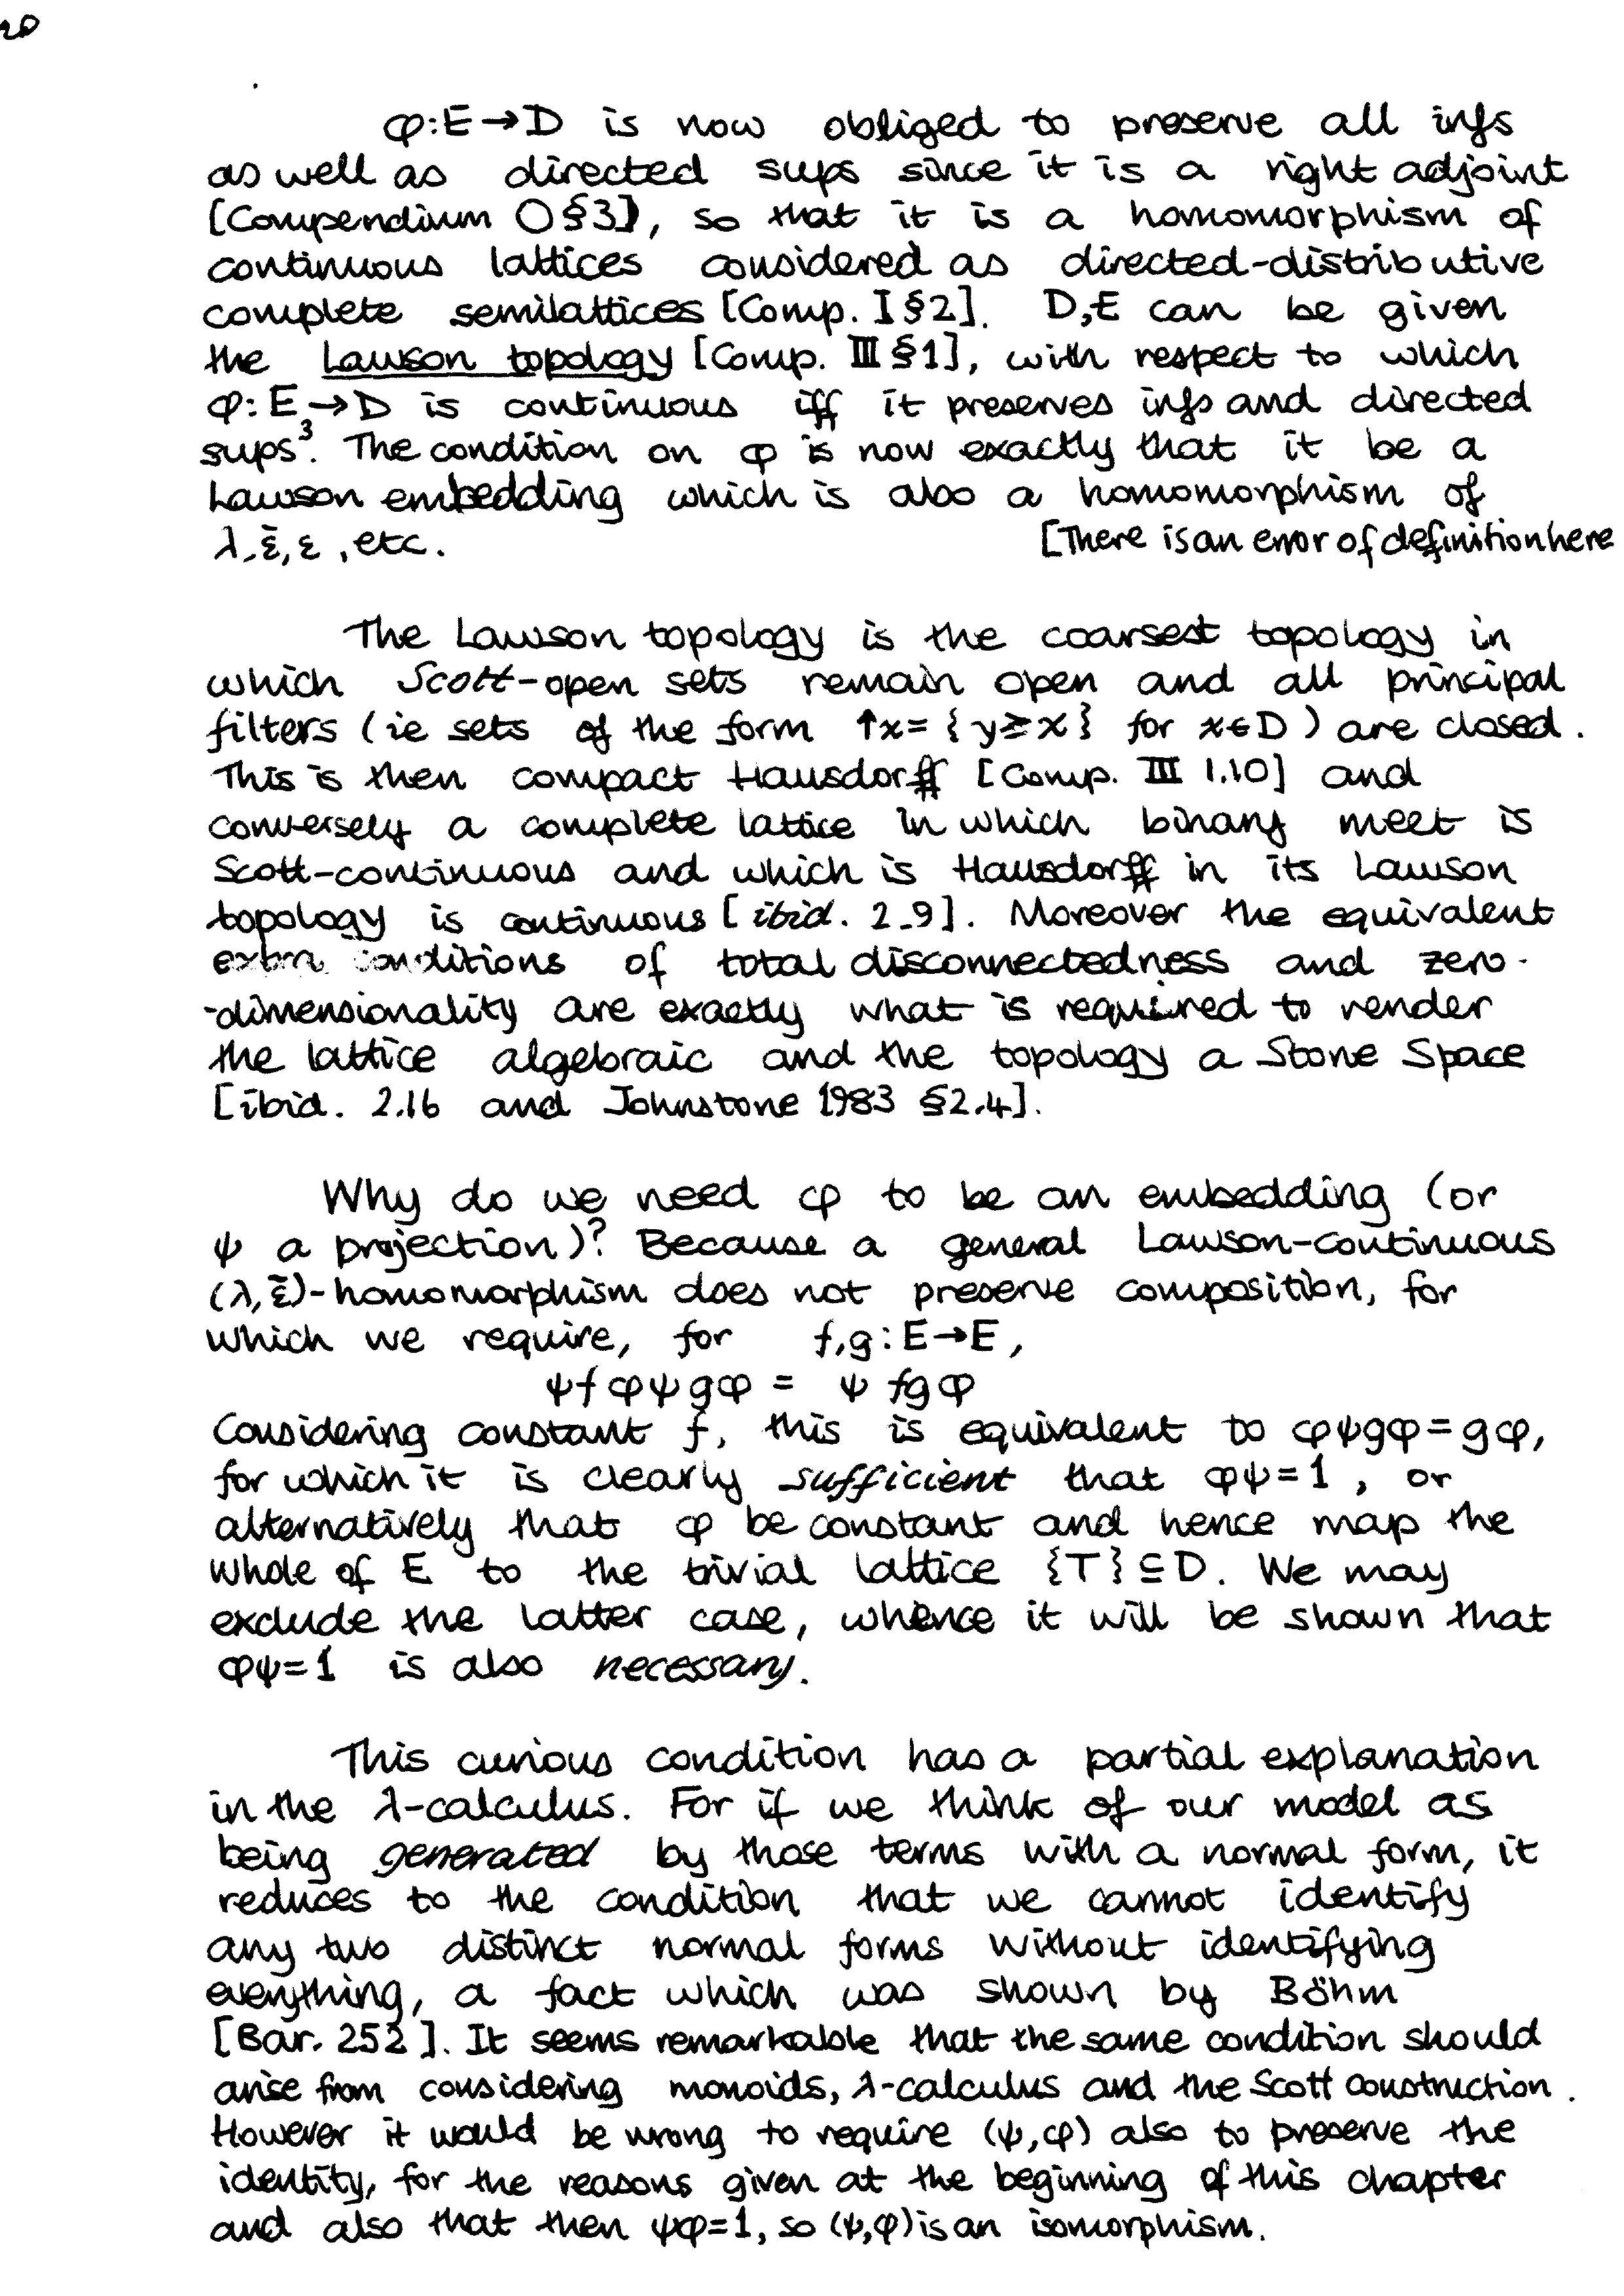 20
φ:E→D is now obliged to preserve all infs
as well as directed sups since it is a right adjoint
[Compendium O§3], so that it is a homomorphism of
continuous lattices considered as directed-distributive
complete semilattices [Comp. I§2]. D,E can be given
the Lawson topology [Comp. III§1], with respect to which
φ:E→D is continuous iff it preserves infs and directed
sups³. The condition on φ is now exactly that it be a
Lawson embedding which is also a homomorphism of
λ, ε̄, ε, etc. [There is an error of definition here
The Lawson topology is the coarsest topology in
which Scott-open sets remain open and all principal
filters (ie sets of the form ↑x={y≥x} for x∈D) are closed.
This is then compact Hausdorff [Comp. III 1.10] and
conversely a complete lattice in which binary meet is
Scott-continuous and which is Hausdorff in its Lawson
topology is continuous [ibid. 2.9]. Moreover the equivalent
extra conditions of total disconnectedness and zero-
-dimensionality are exactly what is required to render
the lattice algebraic and the topology a Stone Space
[ibid. 2.16 and Johnstone 1983 §2.4].
Why do we need φ to be an embedding (or
ψ a projection)? Because a general Lawson-continuous
(λ,ε̄)-homomorphism does not preserve composition, for
which we require, for f,g:E→E,
ψfφψgφ = ψfgφ
Considering constant f, this is equivalent to φψgφ=gφ,
for which it is clearly sufficient that φψ=1, or
alternatively that φ be constant and hence map the
whole of E to the trivial lattice {T}⊆D. We may
exclude the latter case, whence it will be shown that
φψ=1 is also necessary.
This curious condition has a partial explanation
in the λ-calculus. For if we think of our model as
being generated by those terms with a normal form, it
reduces to the condition that we cannot identify
any two distinct normal forms without identifying
everything, a fact which was shown by Böhm
[Bar. 252]. It seems remarkable that the same condition should
arise from considering monoids, λ-calculus and the Scott construction.
However it would be wrong to require (ψ,φ) also to preserve the
identity, for the reasons given at the beginning of this chapter
and also that then ψφ=1, so (ψ,φ) is an isomorphism.